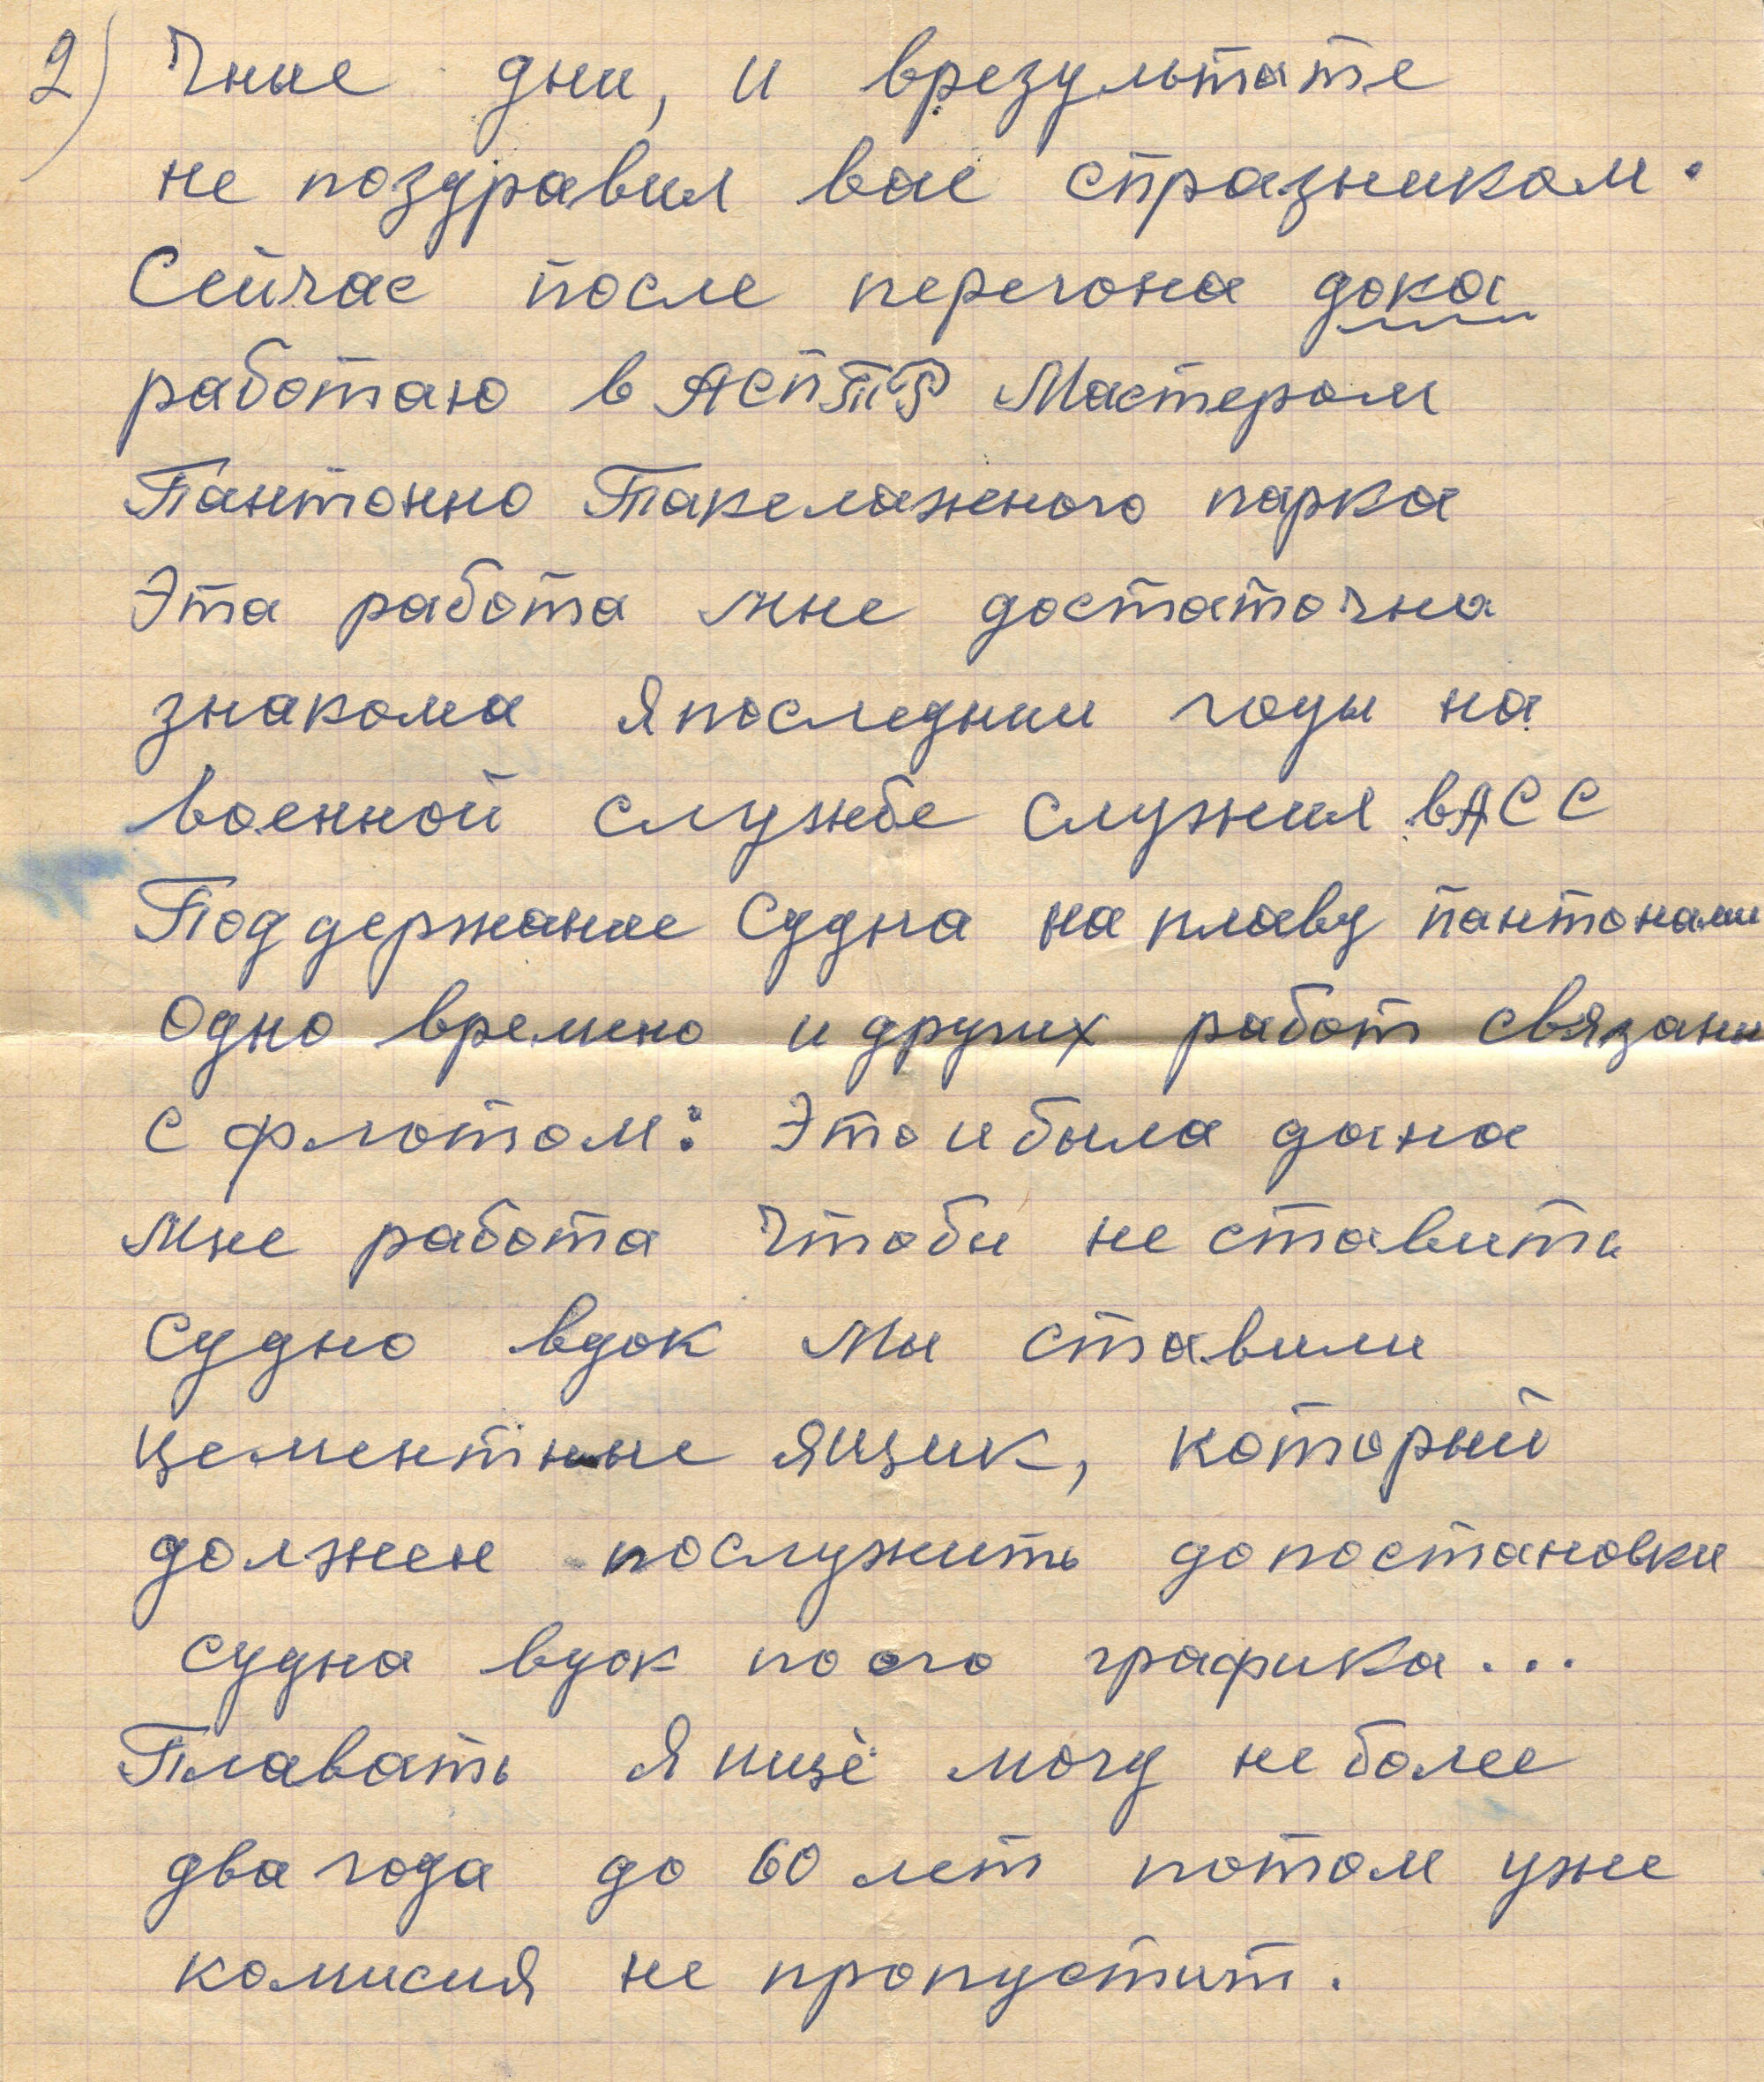 2) Чные дни, и врезультате
не поздравил вас спразником.
Сейчас после перегона дока
работаю в АСПТР Мастером
Пантонно Такелажного парка
Эта работа мне достаточна
знакома я последнии годы на
военной службе служил в АСС
Поддержание Судна на плаву пантонами
Одно времено и других работ связанн
с флотом: Это и была дана
мне работа чтобы не ставить
Судно вдок мы ставили
цементные ящик, который
должен послужить до постановки
судна вдок по его графика...
Плавать я ищё могу не более
два года до 60 лет потом уже
комисия не пропустит.